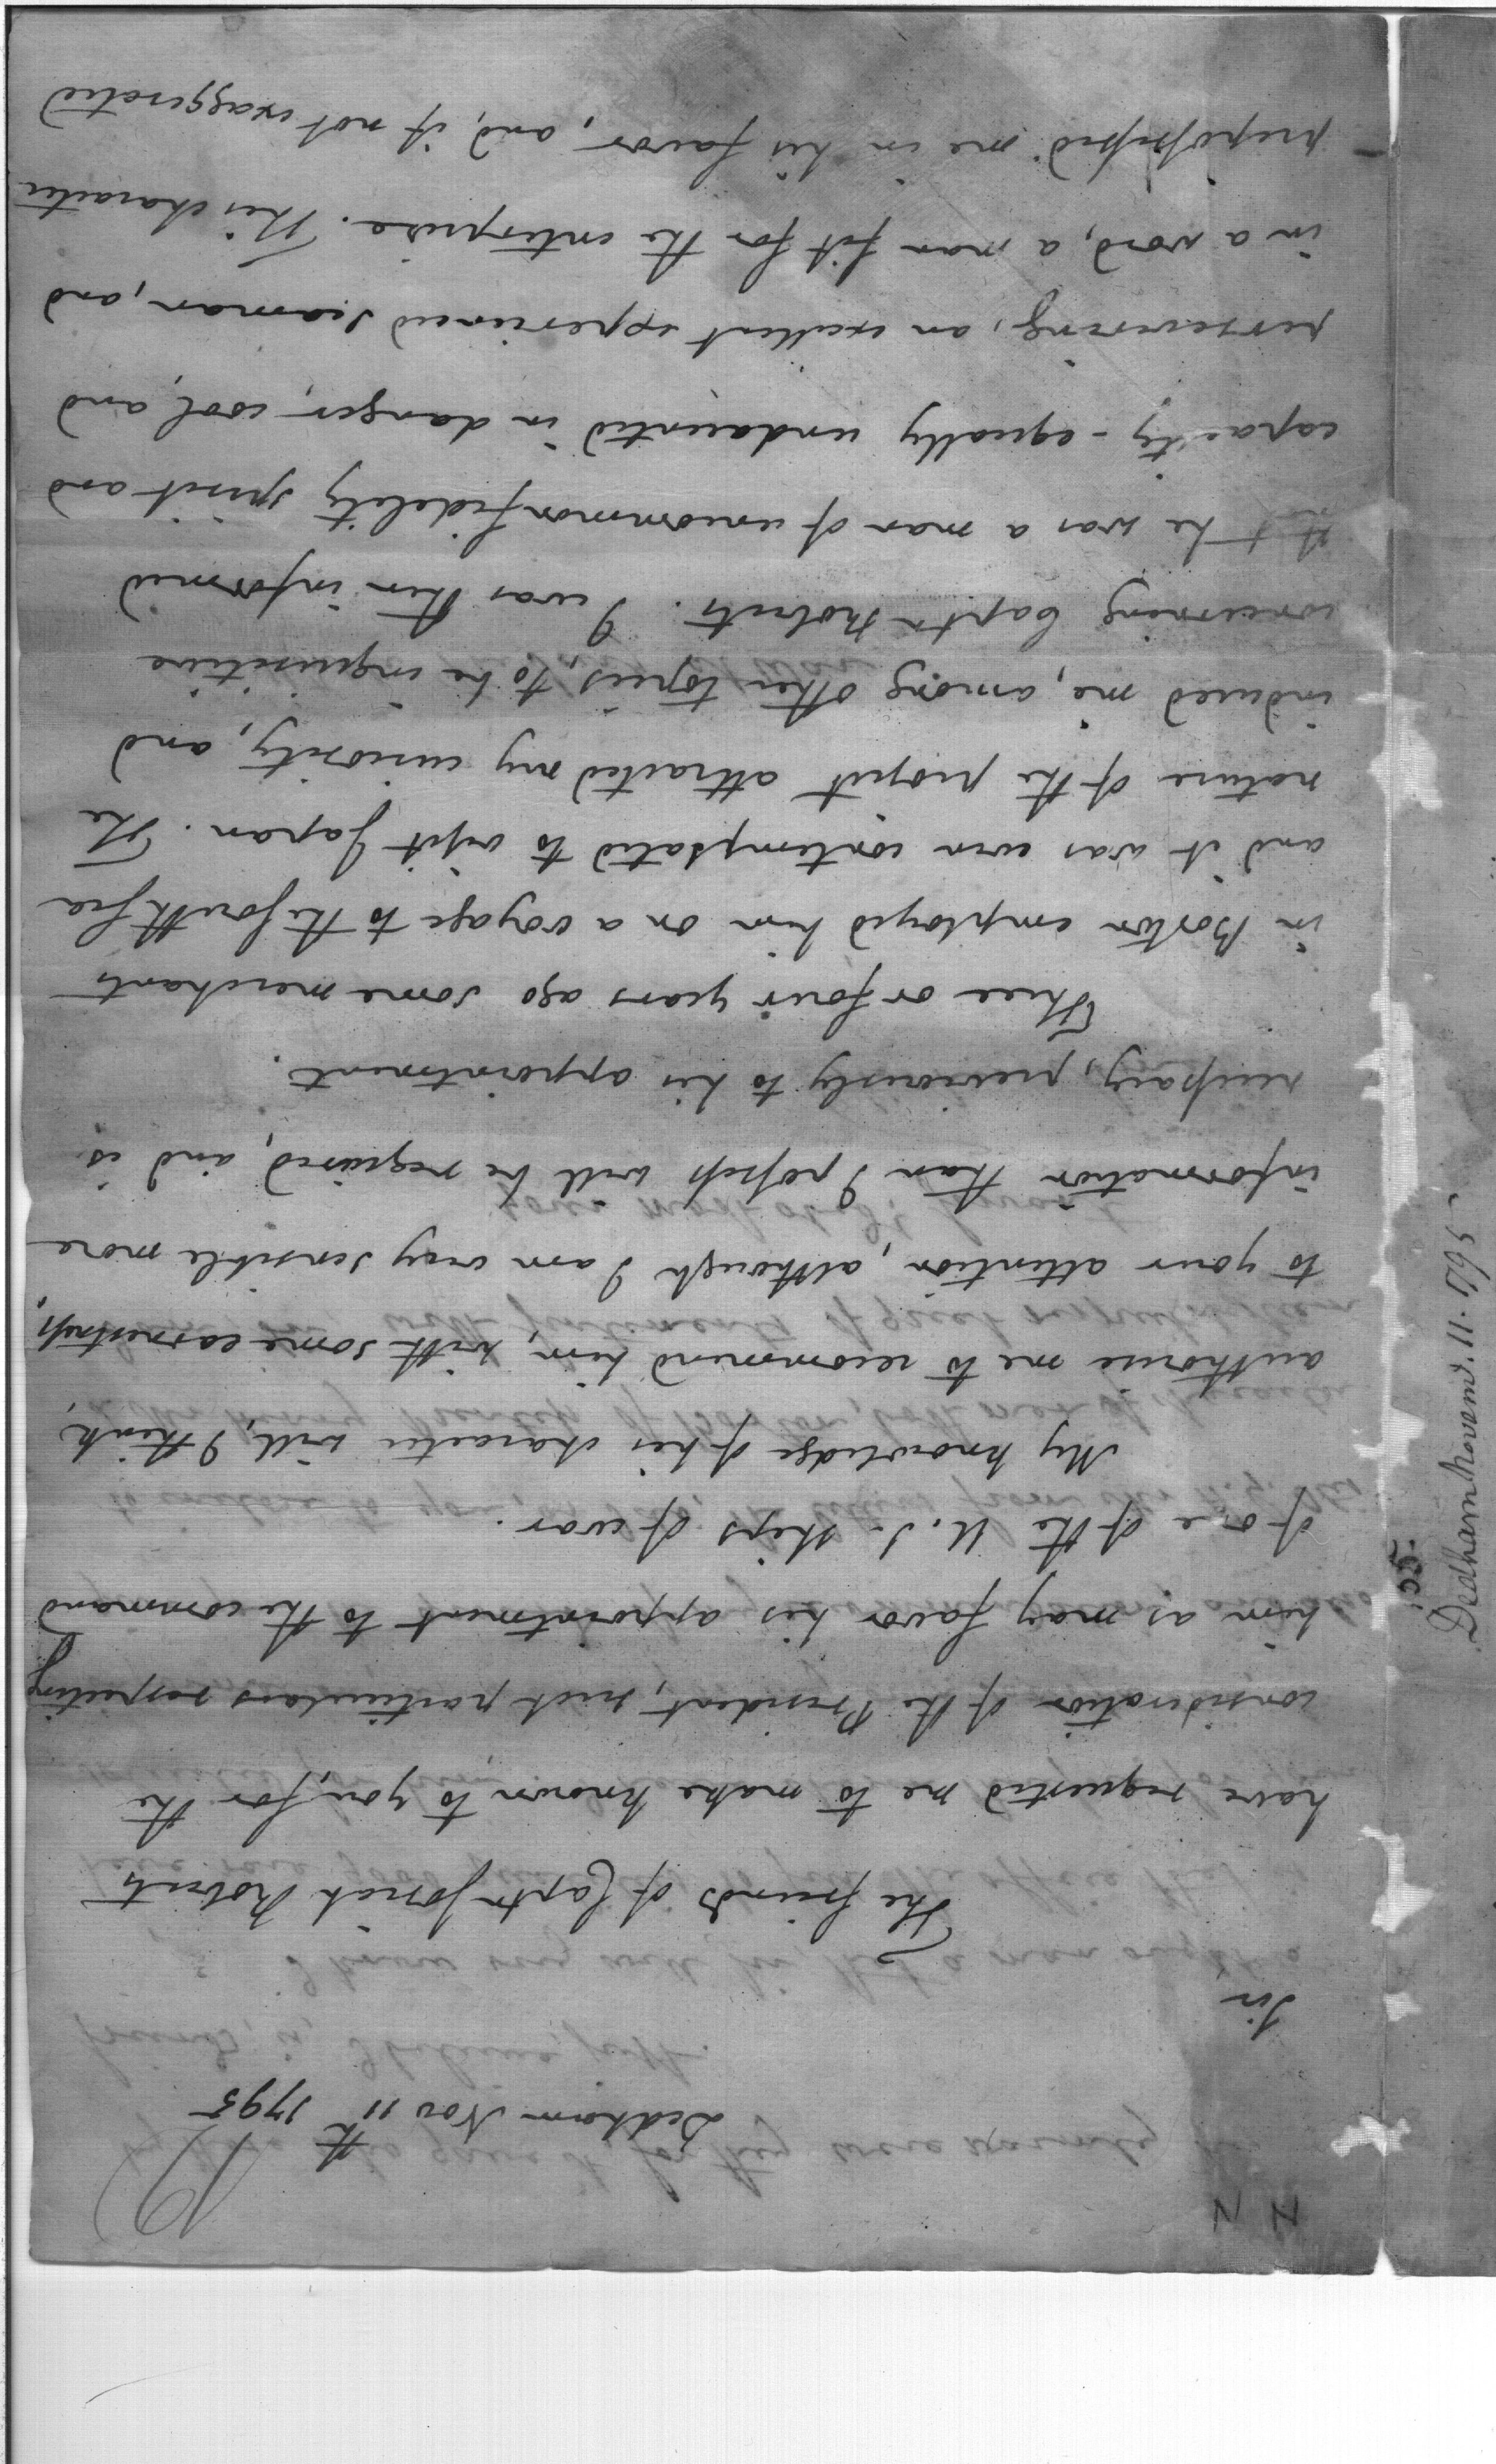 Dedham Nov 11th 1795
Sir
The friends of Capt. Josiah Roberts
have requested me to make known to you, for the
consideration of the President, such particulars respecting
him as may favor his appointment to the command
of one of the U.S. ships of war.
My knowledge of his character will, I think,
authorise me to recommend him, with some earnestness,
to your attention, although I am very sensible more
information than I possess will be required, and is
necessary, previously to his appointment.
Three or four years ago some merchants
in Boston employed him on a voyage to the South Sea
and it was even contemplated to visit Japan. The
nature of the project attracted my curiosity, and
induced me, among other topics, to be inquisitive
concerning Capt. Roberts. I was then informed
that he was a man of uncommon fidelity spirit and
capacity - equally undaunted in danger, cool, and
persevering, an excellent experienced seaman, and
in a word, a man fit for the enterprise. This character
prepossessed me in his favor, and, if not exaggerated
Dedham Novemr. 11. 1795